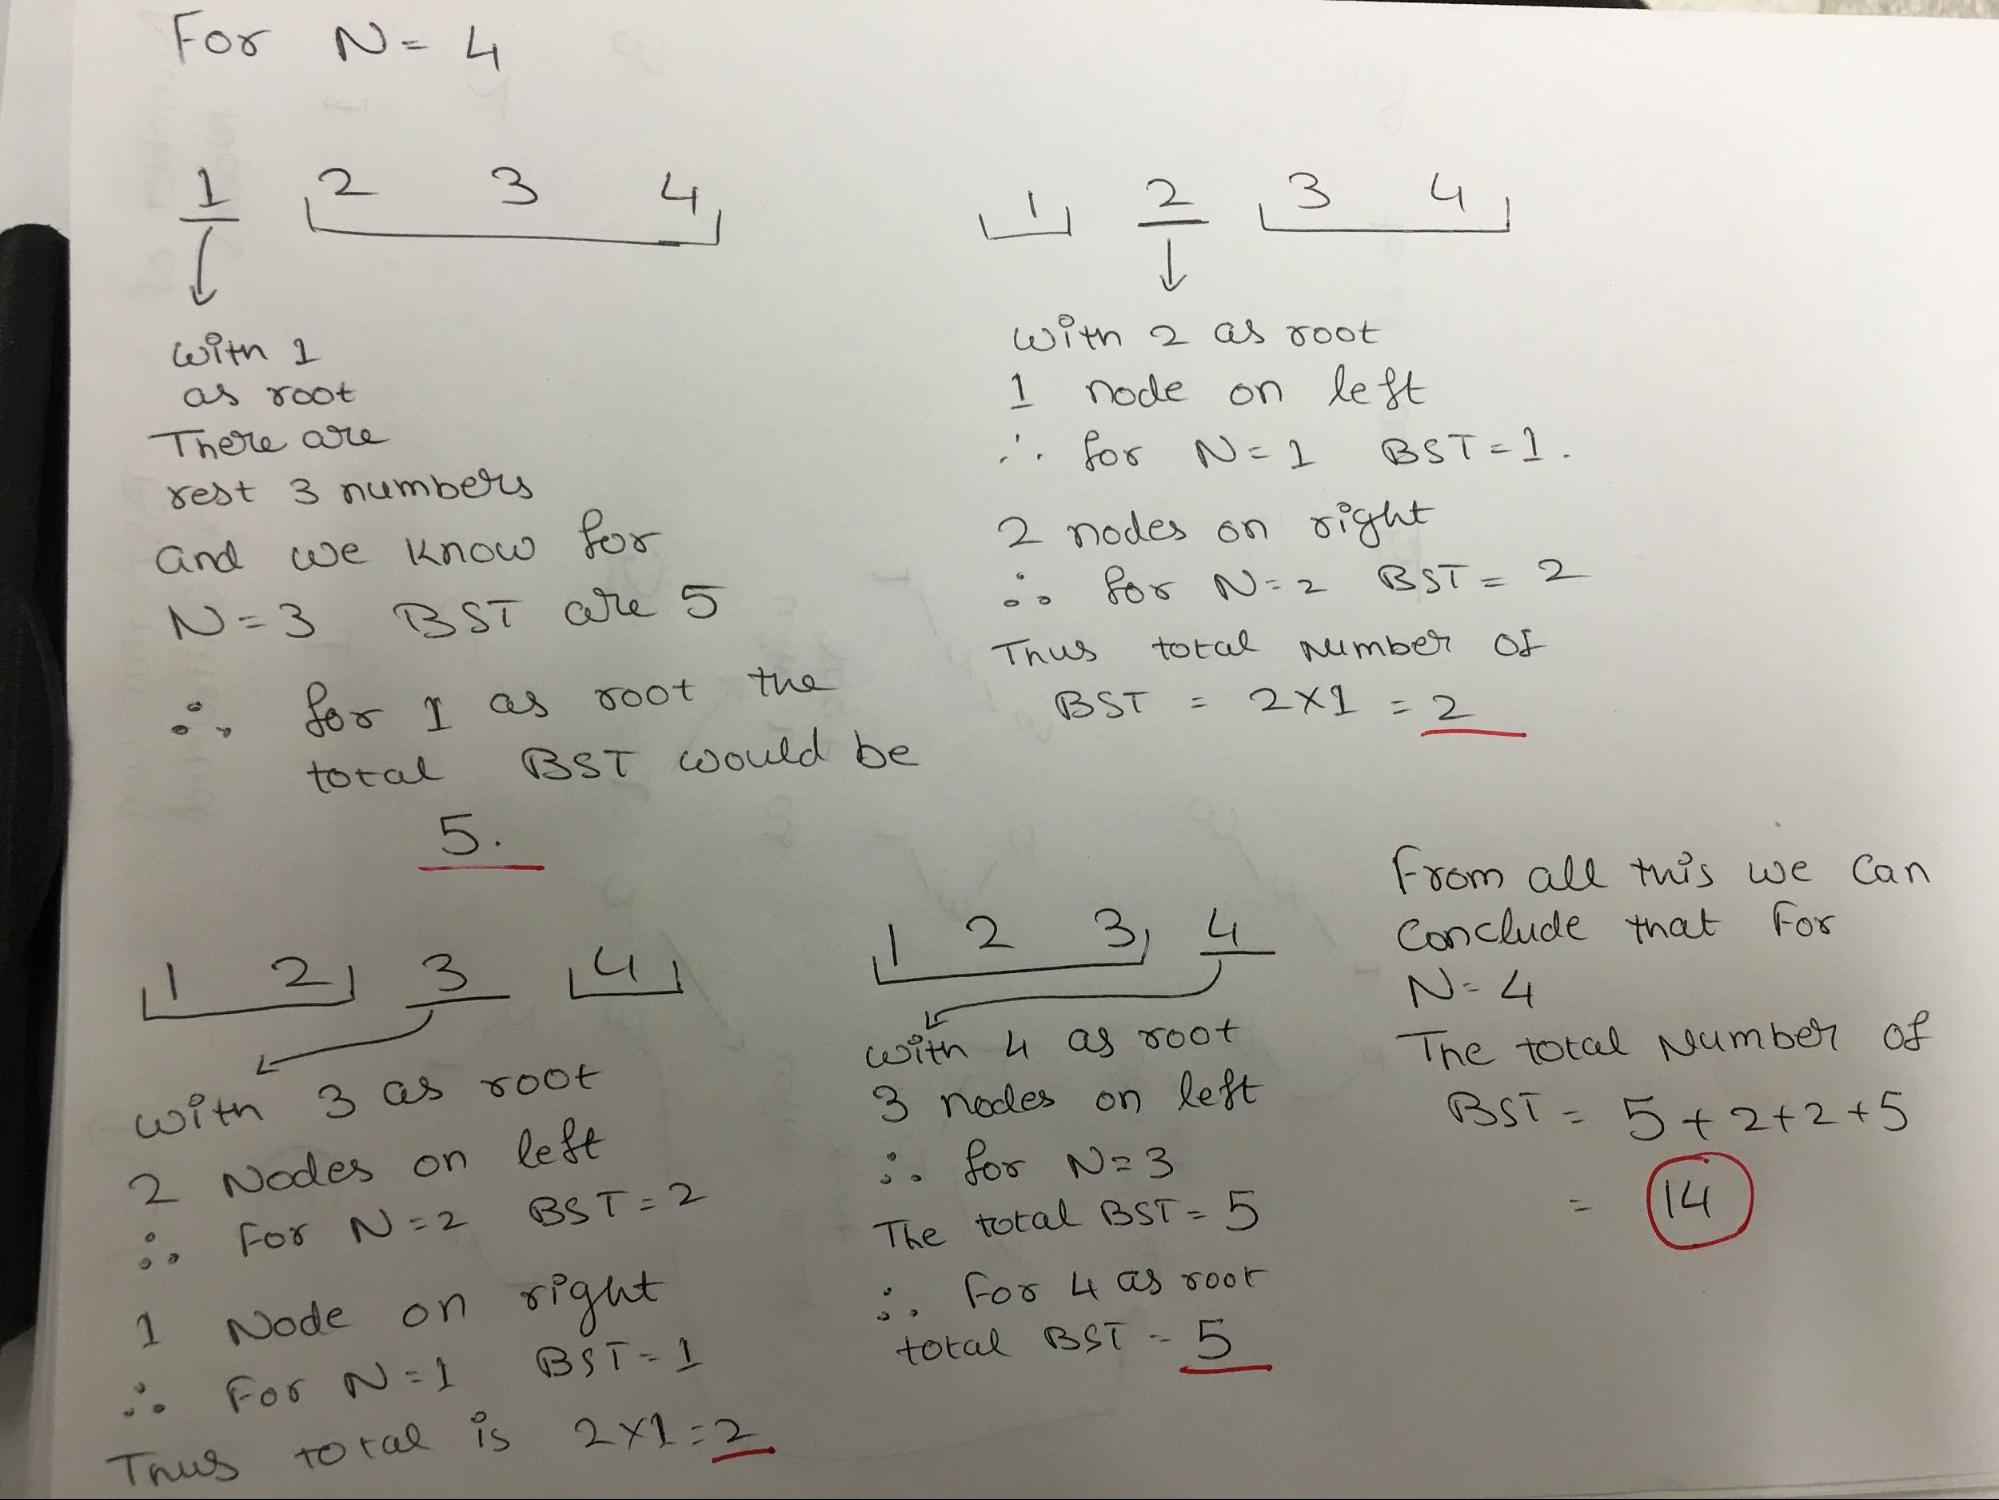 For N = 4
1 2 3 4
with 1
as root
There are
rest 3 numbers
and we know for
N = 3 BST are 5
∴ for 1 as root the
total BST would be
5.
1 2 3 4
with 2 as root
1 node on left
∴ for N = 1 BST = 1.
2 nodes on right
∴ for N = 2 BST = 2
Thus total number of
BST = 2 x 1 = 2
1 2 3 4
with 3 as root
2 Nodes on left
∴ For N = 2 BST = 2
1 Node on right
∴ For N = 1 BST = 1
Thus total is 2 x 1 = 2
1 2 3 4
with 4 as root
3 nodes on left
∴ for N = 3
The total BST = 5
∴ For 4 as root
total BST = 5
From all this we can
conclude that For
N = 4
The total Number of
BST = 5 + 2 + 2 + 5
= 14